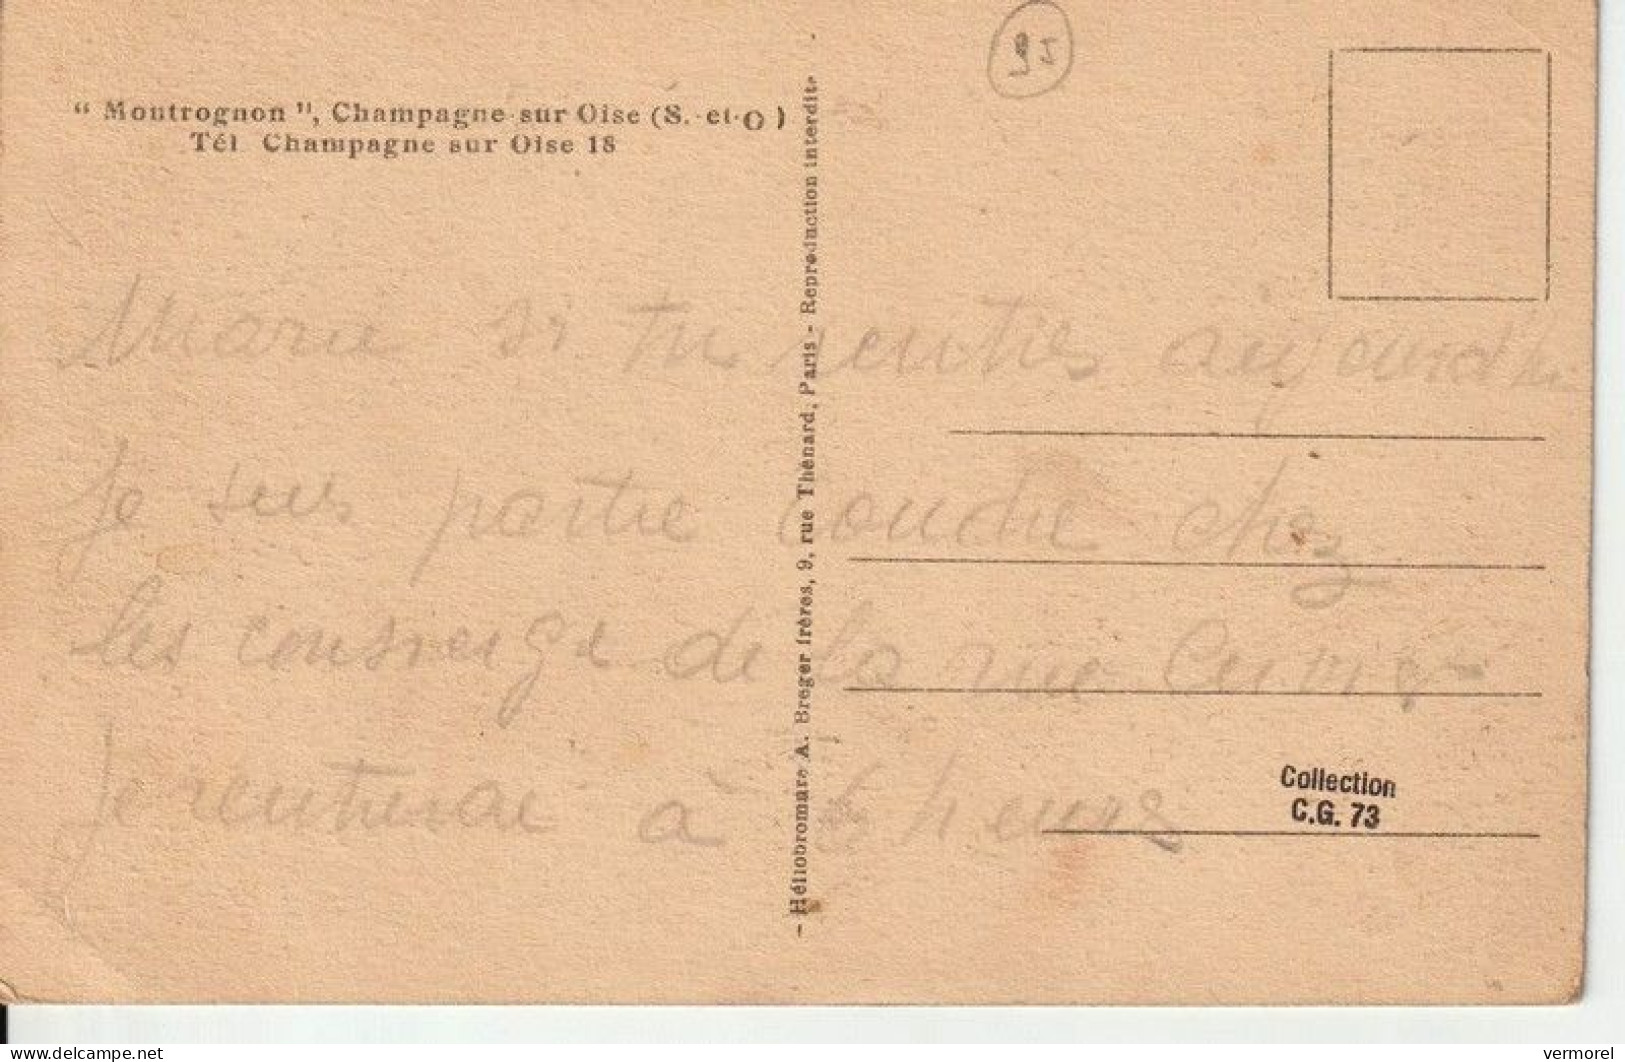 95
" Montrognon ", Champagne-sur Oise (S.-et-O)
Tél Champagne sur Oise 18
Marie si tu rentres aujourdhui
Je suis partie coudre chez
les consierge de la rue
Je renterai à 6 heures
- Héliobromure A. Breger frères, 9, rue Thénard, Paris - Reproduction interdite
Collection
C.G. 73
delcampe.net
vermorel